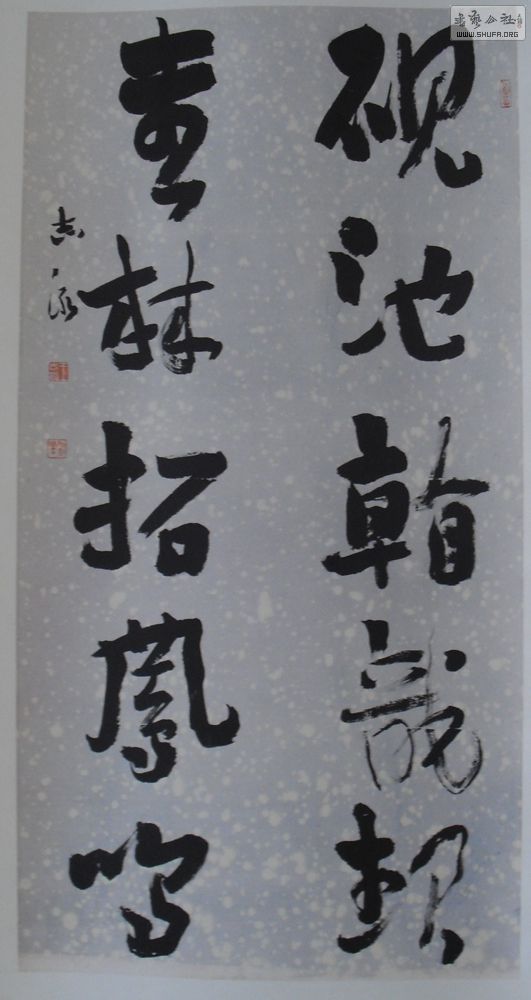 砚池斡龙
书林招凤鸣
志永
书艺公社
WWW.SHUFA.ORG